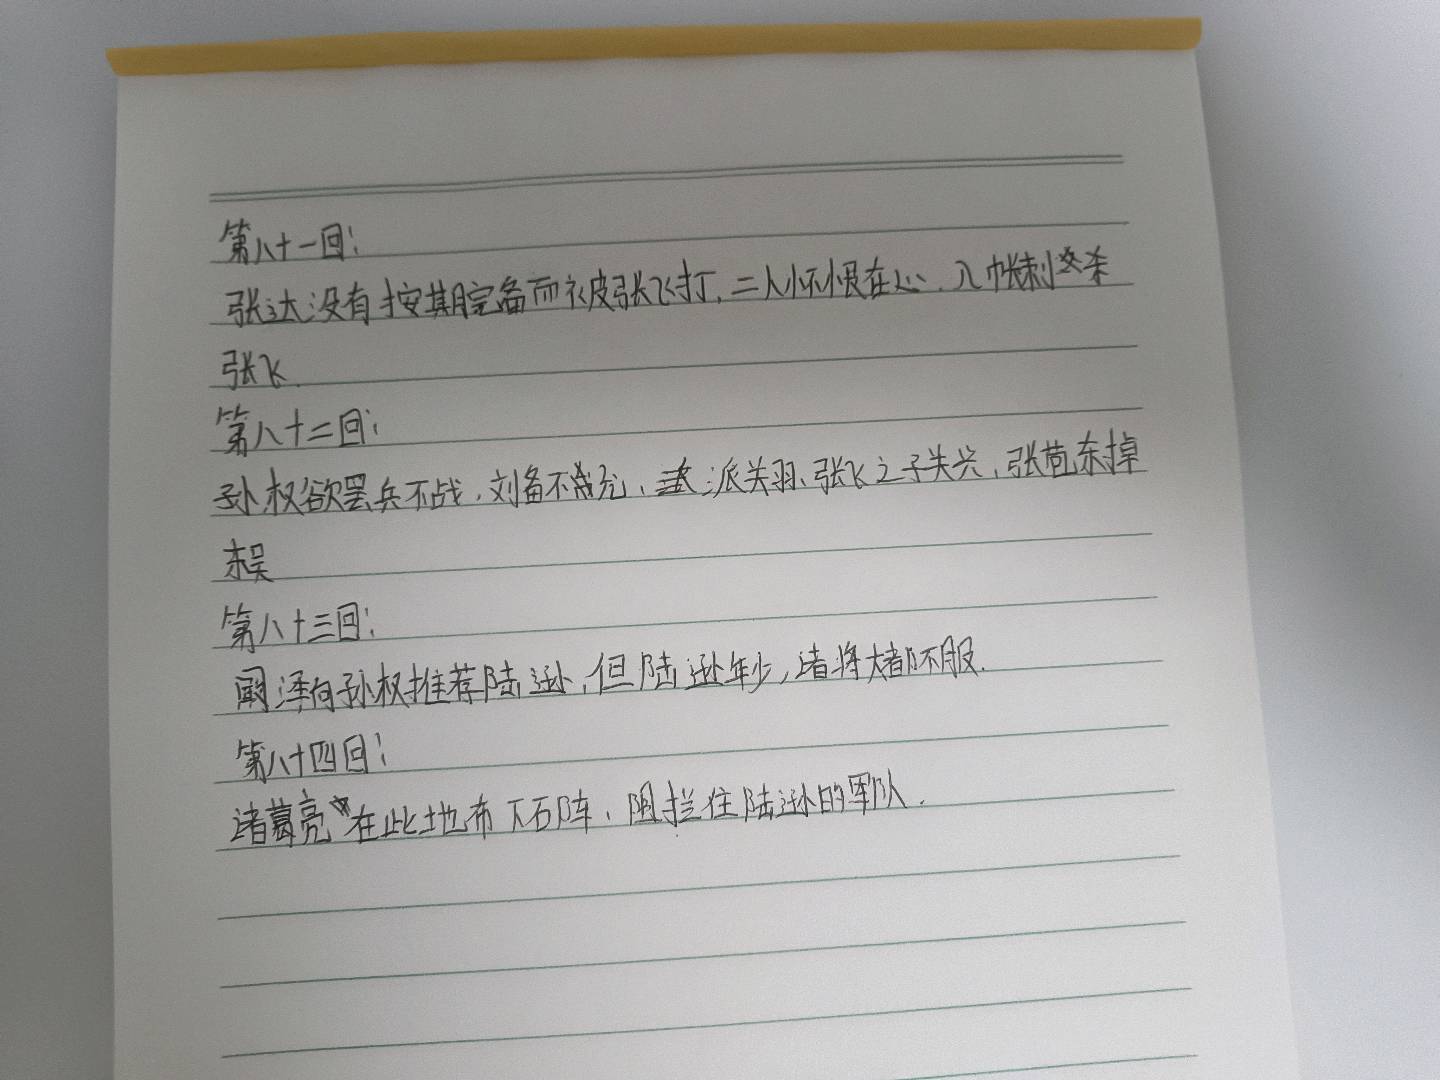 第八十一回:
张达没有按期完备而被张飞打,二人怀恨在心.入帐刺杀
张飞.
第八十二回:
孙权欲罢兵不战,刘备不允、派关羽、张飞之子关兴,张苞东掉
东吴
第八十三回:
阚泽向孙权推荐陆逊,但陆逊年少,诸将大都不服.
第八十四回:
诸葛亮在此地布下石阵,阻拦住陆逊的军队.